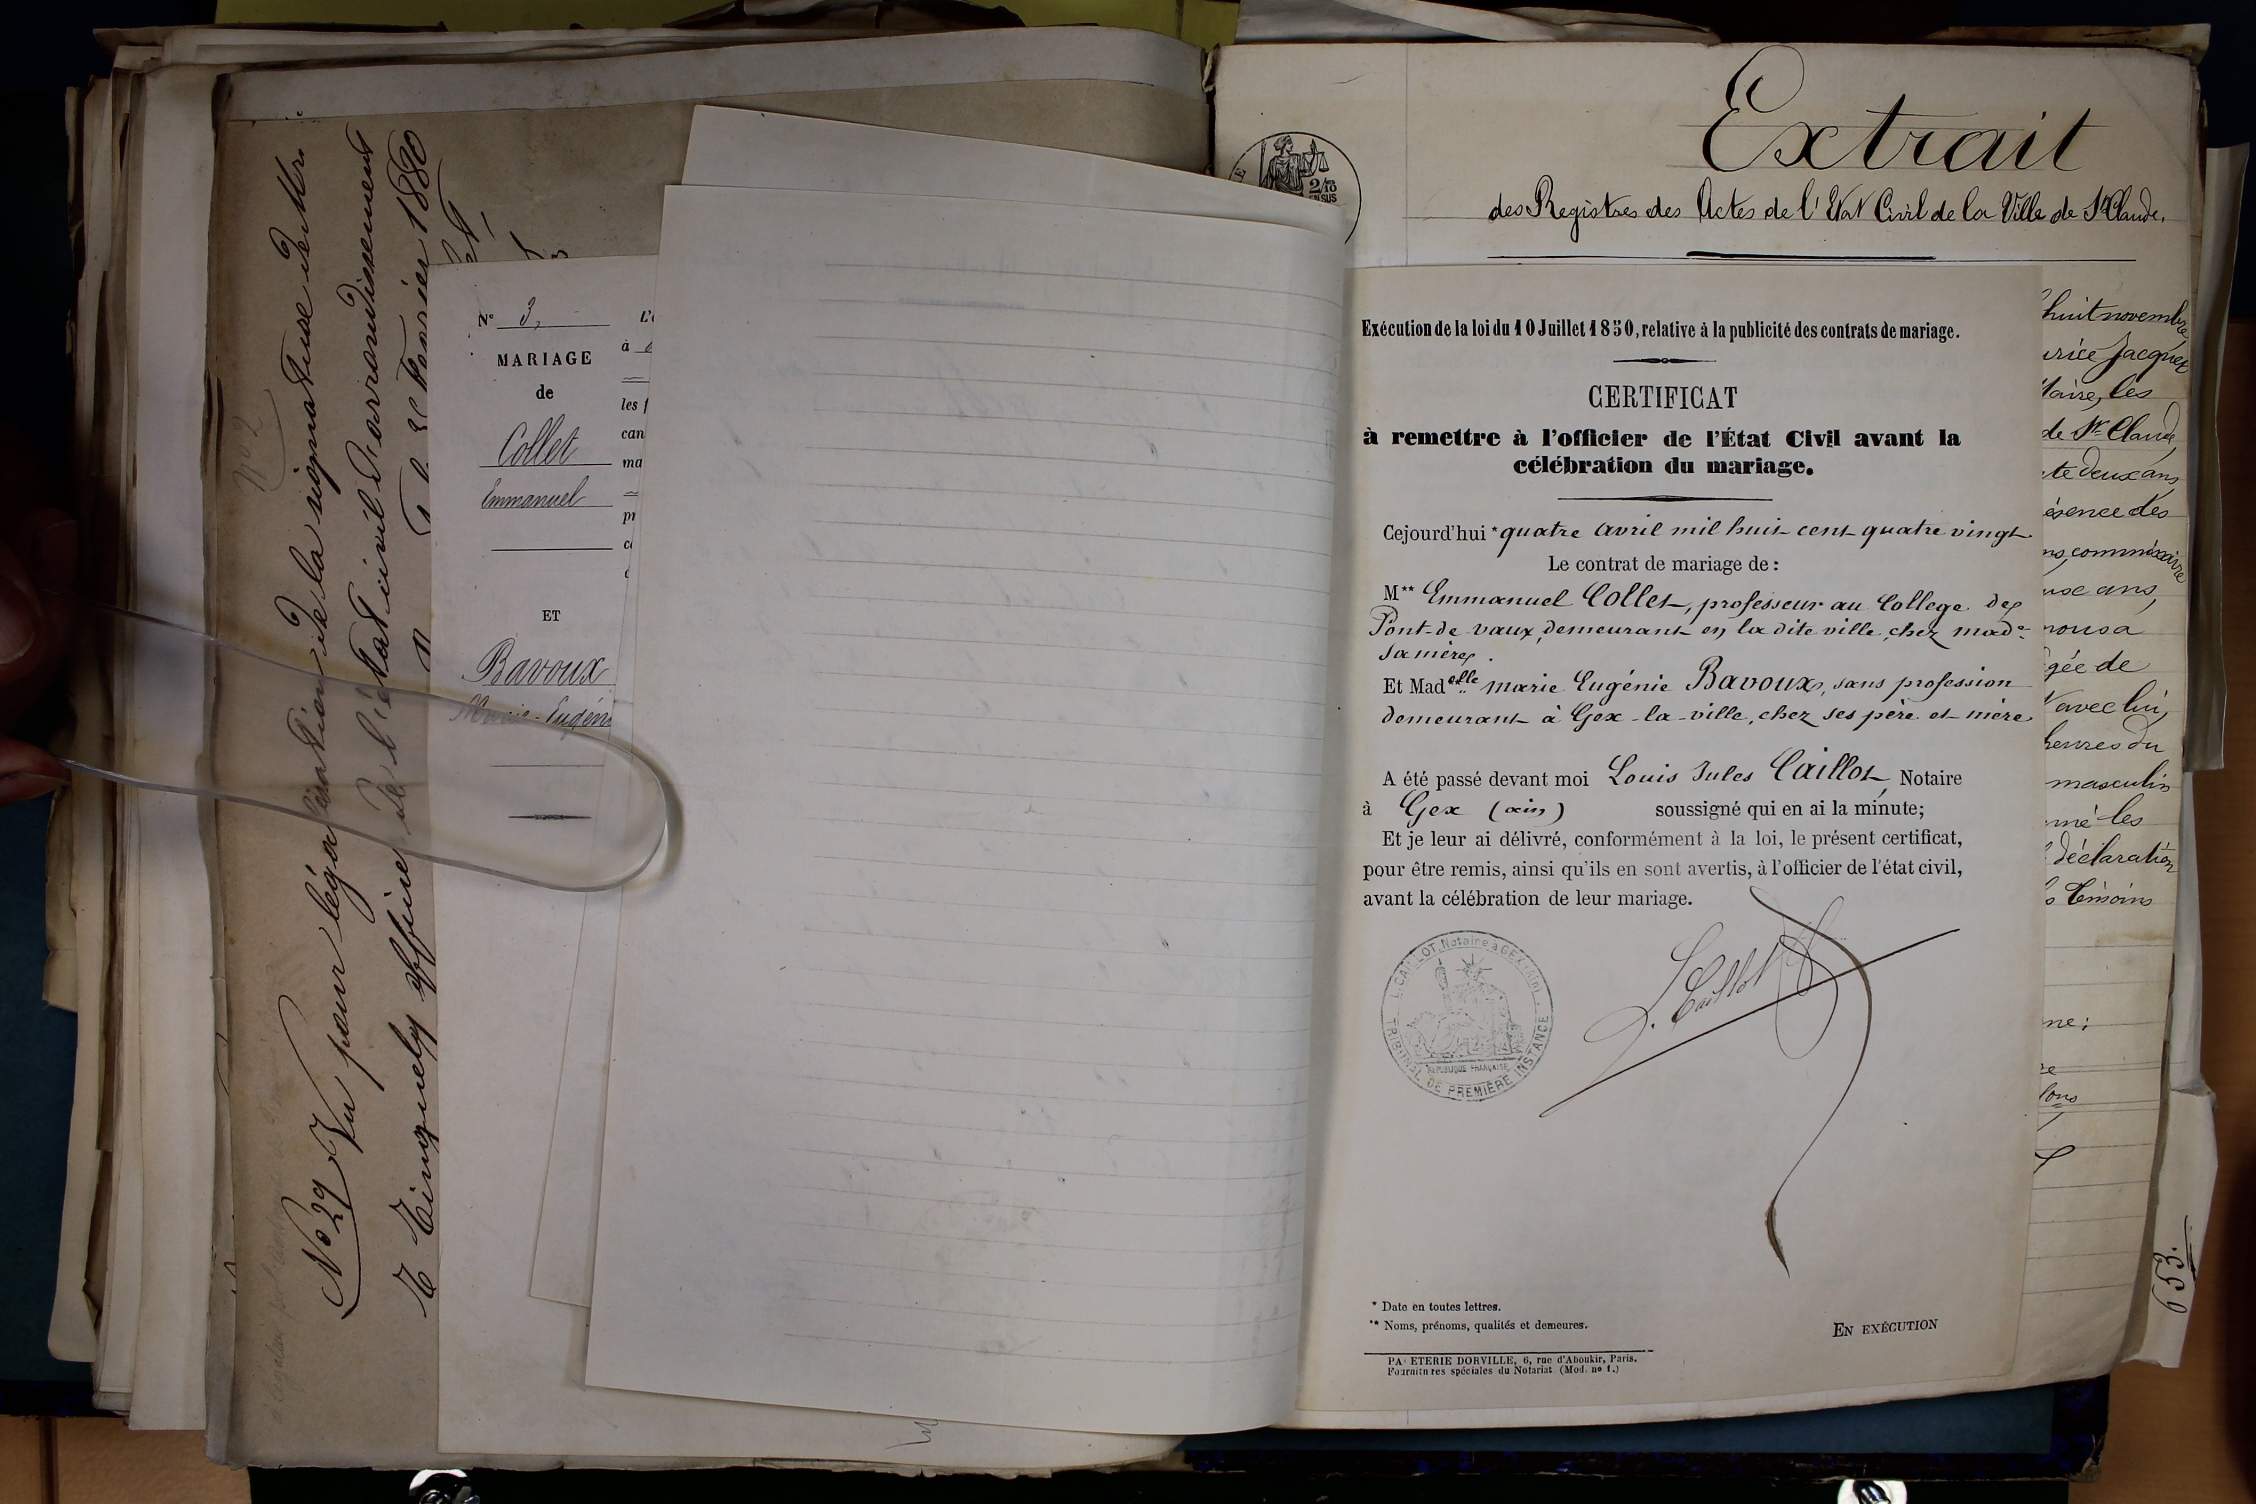 No 2
No 29 Vu pour légalisation de la signature de Mr.
E Tinguely officier de l'état civil d'arrondissement
Février 1880
N° 3,
MARIAGE
de
Collet
Emmanuel
ET
Bavoux
Marie-Eugén
L'
à
les f
can
ma
pr
Extrait
des Registres des Actes de l'Etat Civil de la Ville de St Claude.
2/10
EN SUS
Exécution de la loi du 10 Juillet 1850, relative à la publicité des contrats de mariage.
CERTIFICAT
à remettre à l'officier de l'État Civil avant la
célébration du mariage.
Cejourd'hui * quatre avril mil huit cent quatre vingt
Le contrat de mariage de :
M** Emmanuel Collet, professeur au College de
Pont-de-vaux, demeurant en la dite ville, chez made
sa mère.
Et Madelle marie Eugénie Bavoux, sans profession
demeurant à Gex-la-ville, chez ses père et mère
A été passé devant moi Louis Jules Caillot, Notaire
à Gex (ain) soussigné qui en ai la minute;
Et je leur ai délivré, conformément à la loi, le présent certificat,
pour être remis, ainsi qu'ils en sont avertis, à l'officier de l'état civil,
avant la célébration de leur mariage.
L. CAILLOT, Notaire à GEX (AIN)
TRIBUNEL DE PREMIÈRE INSTANCE
REPUBLIQUE FRANÇAISE
L. Caillot
* Date en toutes lettres.
** Noms, prénoms, qualités et demeures.
EN EXÉCUTION
PA ETERIE DORVILLE, 6, rue d'Aboukir, Paris.
Fournitures spéciales du Notariat (Mod. no 1.)
huit novembre
urice Jacquex
Maire, les
de St Claude
te deux ans,
ésence des
ns, commissaire
ux ans,
nous a
gée de
avec lui,
heures du
masculin
mé les
déclaration
s témoins
me :
re
lons
653.